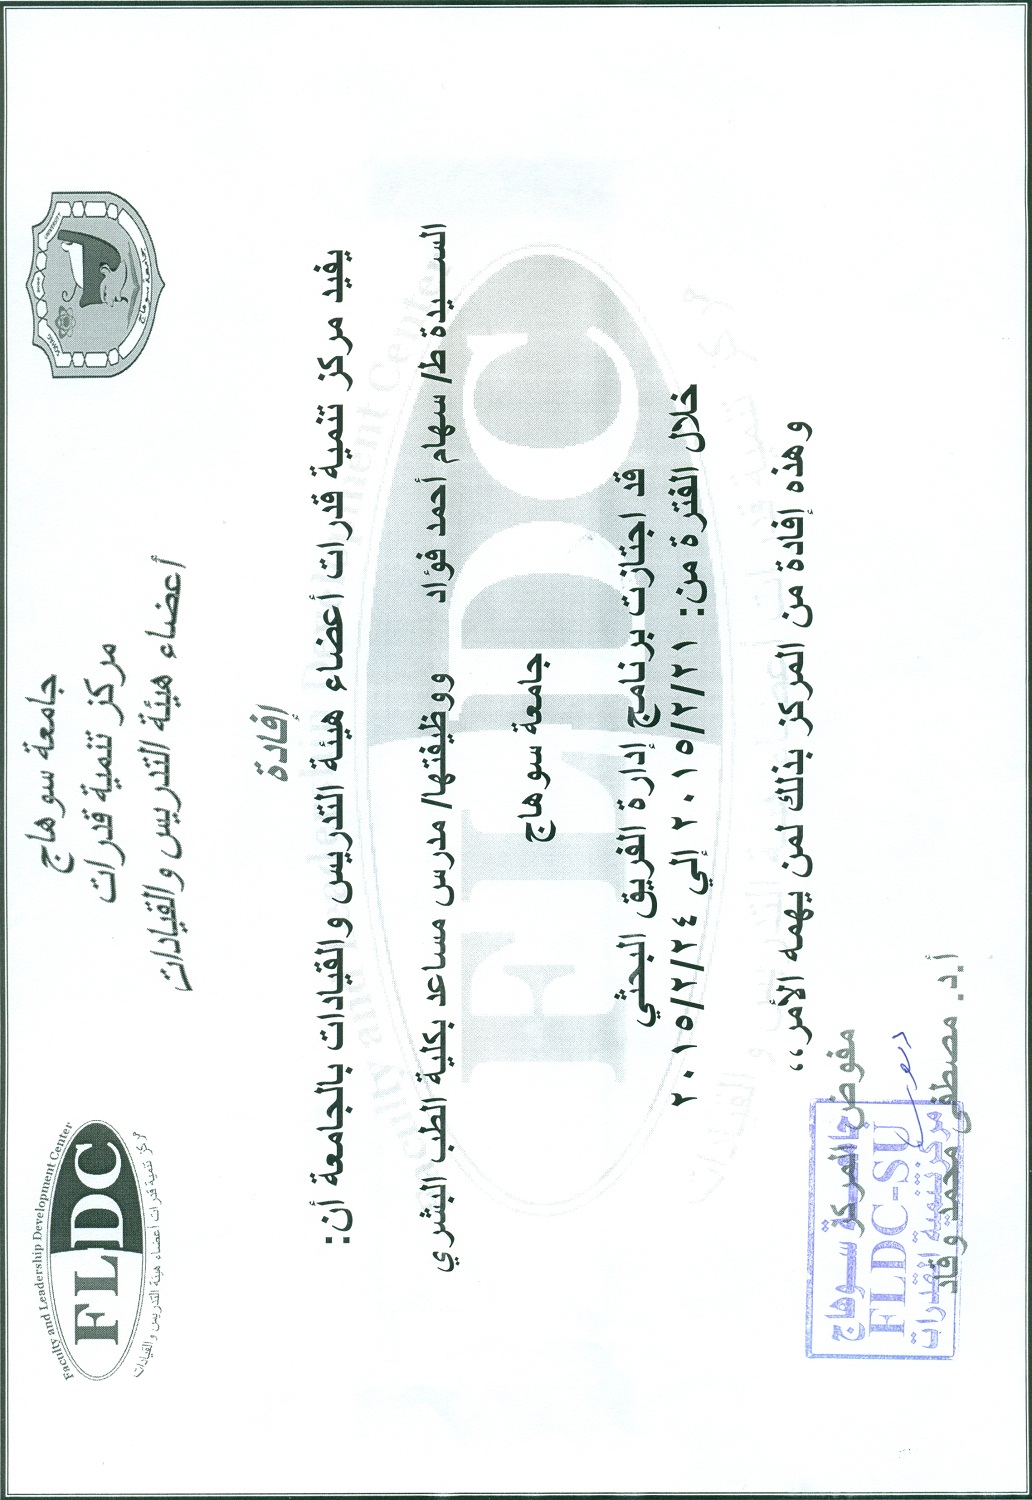 جامعة سوهاج
مركز تنمية قدرات
أعضاء هيئة التدريس والقيادات
Faculty and Leadership Development Center
FLDC
مركز تنمية قدرات أعضاء هيئة التدريس والقيادات
جامعة سوهاج
SOHAG
UNIVERSITY
إفادة
يفيد مركز تنمية قدرات أعضاء هيئة التدريس والقيادات بالجامعة أن:
السيدة ط/ سهام أحمد فؤاد ووظيفتها/ مدرس مساعد بكلية الطب البشري
جامعة سوهاج
قد اجتازت برنامج إدارة الفريق البحثي
خلال الفترة من: ٢٠١٥/٢/٢١ إلي ٢٠١٥/٢/٢٤
وهذه إفادة من المركز بذلك لمن يهمه الأمر،،
مفوض المركز
أ.د. مصطفى محمد وقاد
جامعة سوهاج
FLDC-SU
مركز تنمية القدرات